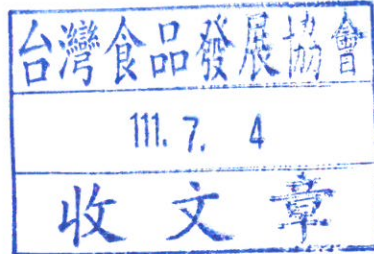 台灣食品發展協會
111. 7. 4
收文章